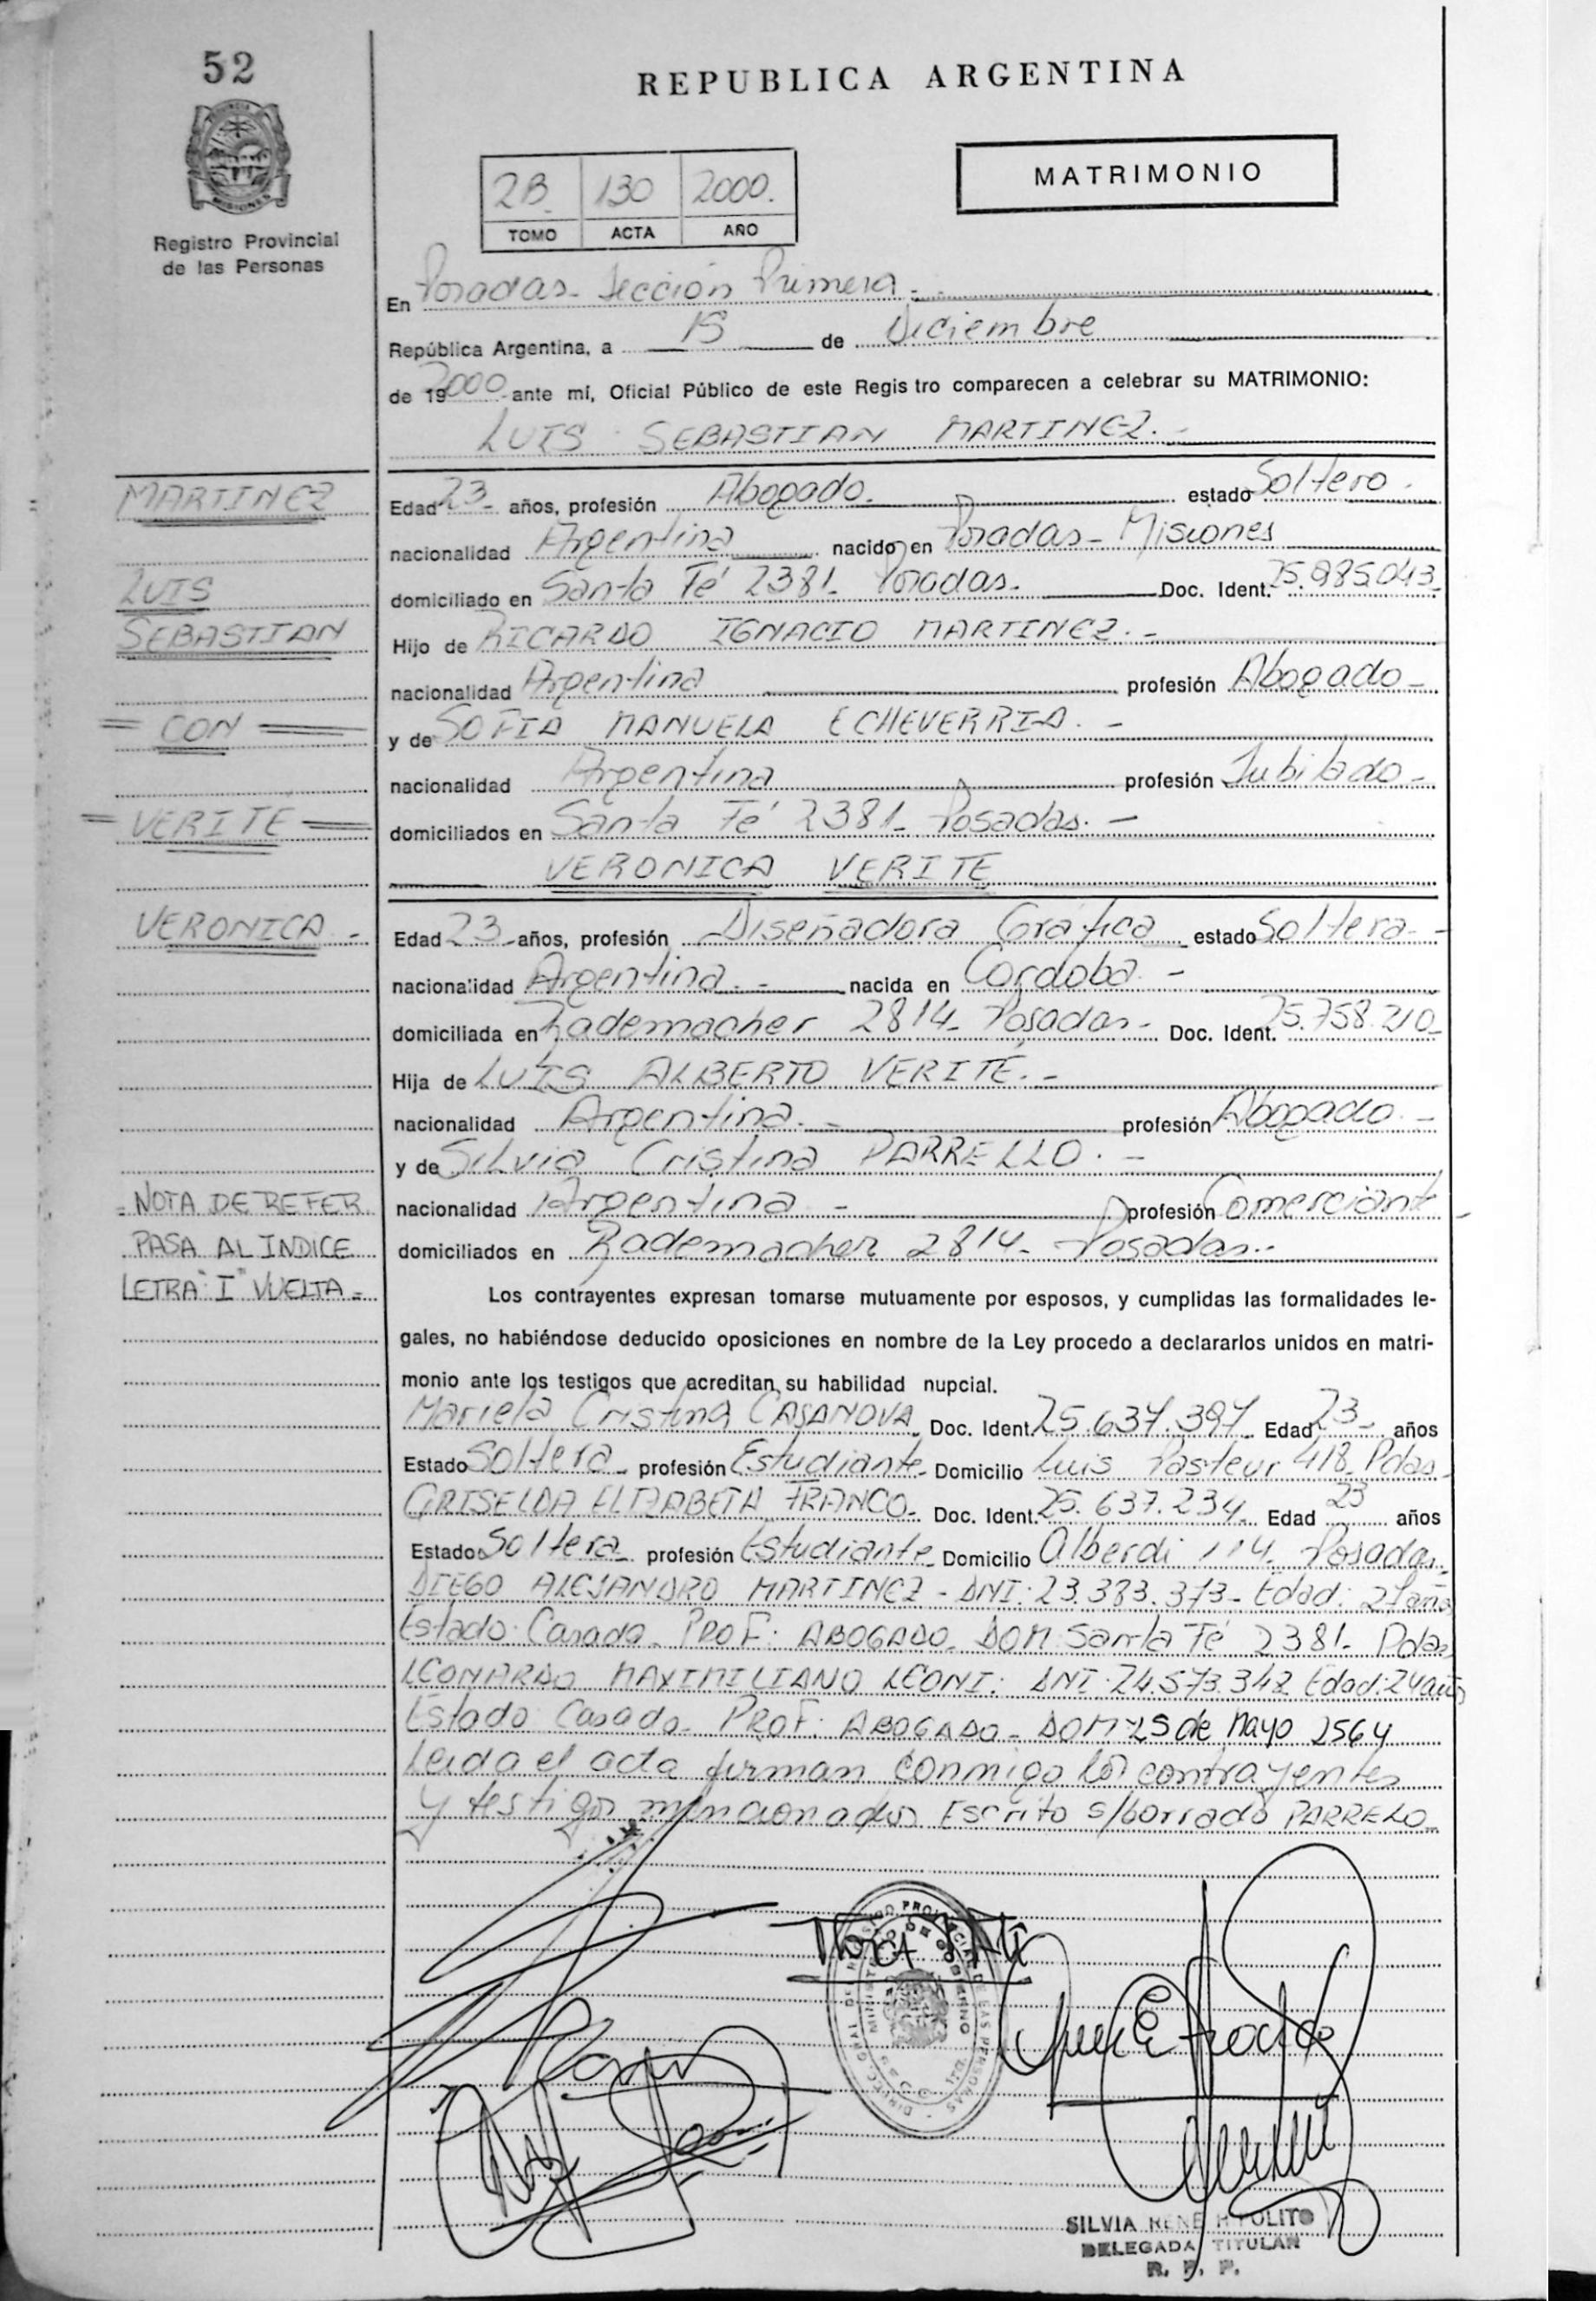 52
REPUBLICA ARGENTINA
MATRIMONIO
2B. 130 2000.
TOMO ACTA AÑO
Registro Provincial
de las Personas
En Posadas - Sección Primera -
República Argentina, a 15 de Diciembre
de 192000 ante mí, Oficial Público de este Regis tro comparecen a celebrar su MATRIMONIO:
LUIS SEBASTIAN MARTINEZ. -
MARTINEZ
LUIS
SEBASTIAN
= CON =
= VERITE =
VERONICA -
Edad 23 - años, profesión Abogado. estado Soltero.
nacionalidad Argentina nacido en Posadas - Misiones
domiciliado en Santa Fé 2381 - Posadas. Doc. Ident. 25.985.043
Hijo de RICARDO IGNACIO MARTINEZ. -
nacionalidad Argentina profesión Abogado -
y de SOFIA MANUELA ECHEVERRIA. -
nacionalidad Argentina profesión Jubilado -
domiciliados en Santa Fé 2381 - Posadas. -
VERONICA VERITE
Edad 23 - años, profesión Diseñadora Gráfica estado Soltera -
nacionalidad Argentina. - nacida en Cordoba -
domiciliada en Rademacher 2814 - Posadas - Doc. Ident. 25.758.210 -
Hija de LUIS ALBERTO VERITÉ. -
nacionalidad Argentina. - profesión Abogado. -
y de Silvia Cristina PARRELLO. -
nacionalidad Argentina - profesión Comerciante -
domiciliados en Rademacher 2814 - Posadas -
= NOTA DE REFER
PASA AL INDICE
LETRA "I" VUELTA =
Los contrayentes expresan tomarse mutuamente por esposos, y cumplidas las formalidades le-
gales, no habiéndose deducido oposiciones en nombre de la Ley procedo a declararlos unidos en matri-
monio ante los testigos que acreditan su habilidad nupcial.
Mariela Cristina CASANOVA Doc. Ident. 25.637.397 Edad 23 - años
Estado Soltera - profesión Estudiante - Domicilio Luis Pasteur 418 - Pdas -
GRISELDA ELIZABETH FRANCO - Doc. Ident. 25.637.234 - Edad 23 años
Estado Soltera - profesión Estudiante - Domicilio Alberdi 114 - Posadas -
DIEGO ALEJANDRO MARTINEZ - DNI: 23.383.373 - Edad: 27 años
Estado: Casado - PROF: ABOGADO - DOM: Santa Fé 2381 - Pdas
LEONARDO MAXIMILIANO LEONI: DNI: 24.573.342 Edad: 24 años
Estado Casado - PROF: ABOGADO - DOM: 25 de Mayo 2564
Leida el acta firman conmigo los contrayentes
y testigos mencionados Escrito s/borrado PARRELO -
SILVIA RENE HIPOLITO
DELEGADA TITULAR
R. P. P.